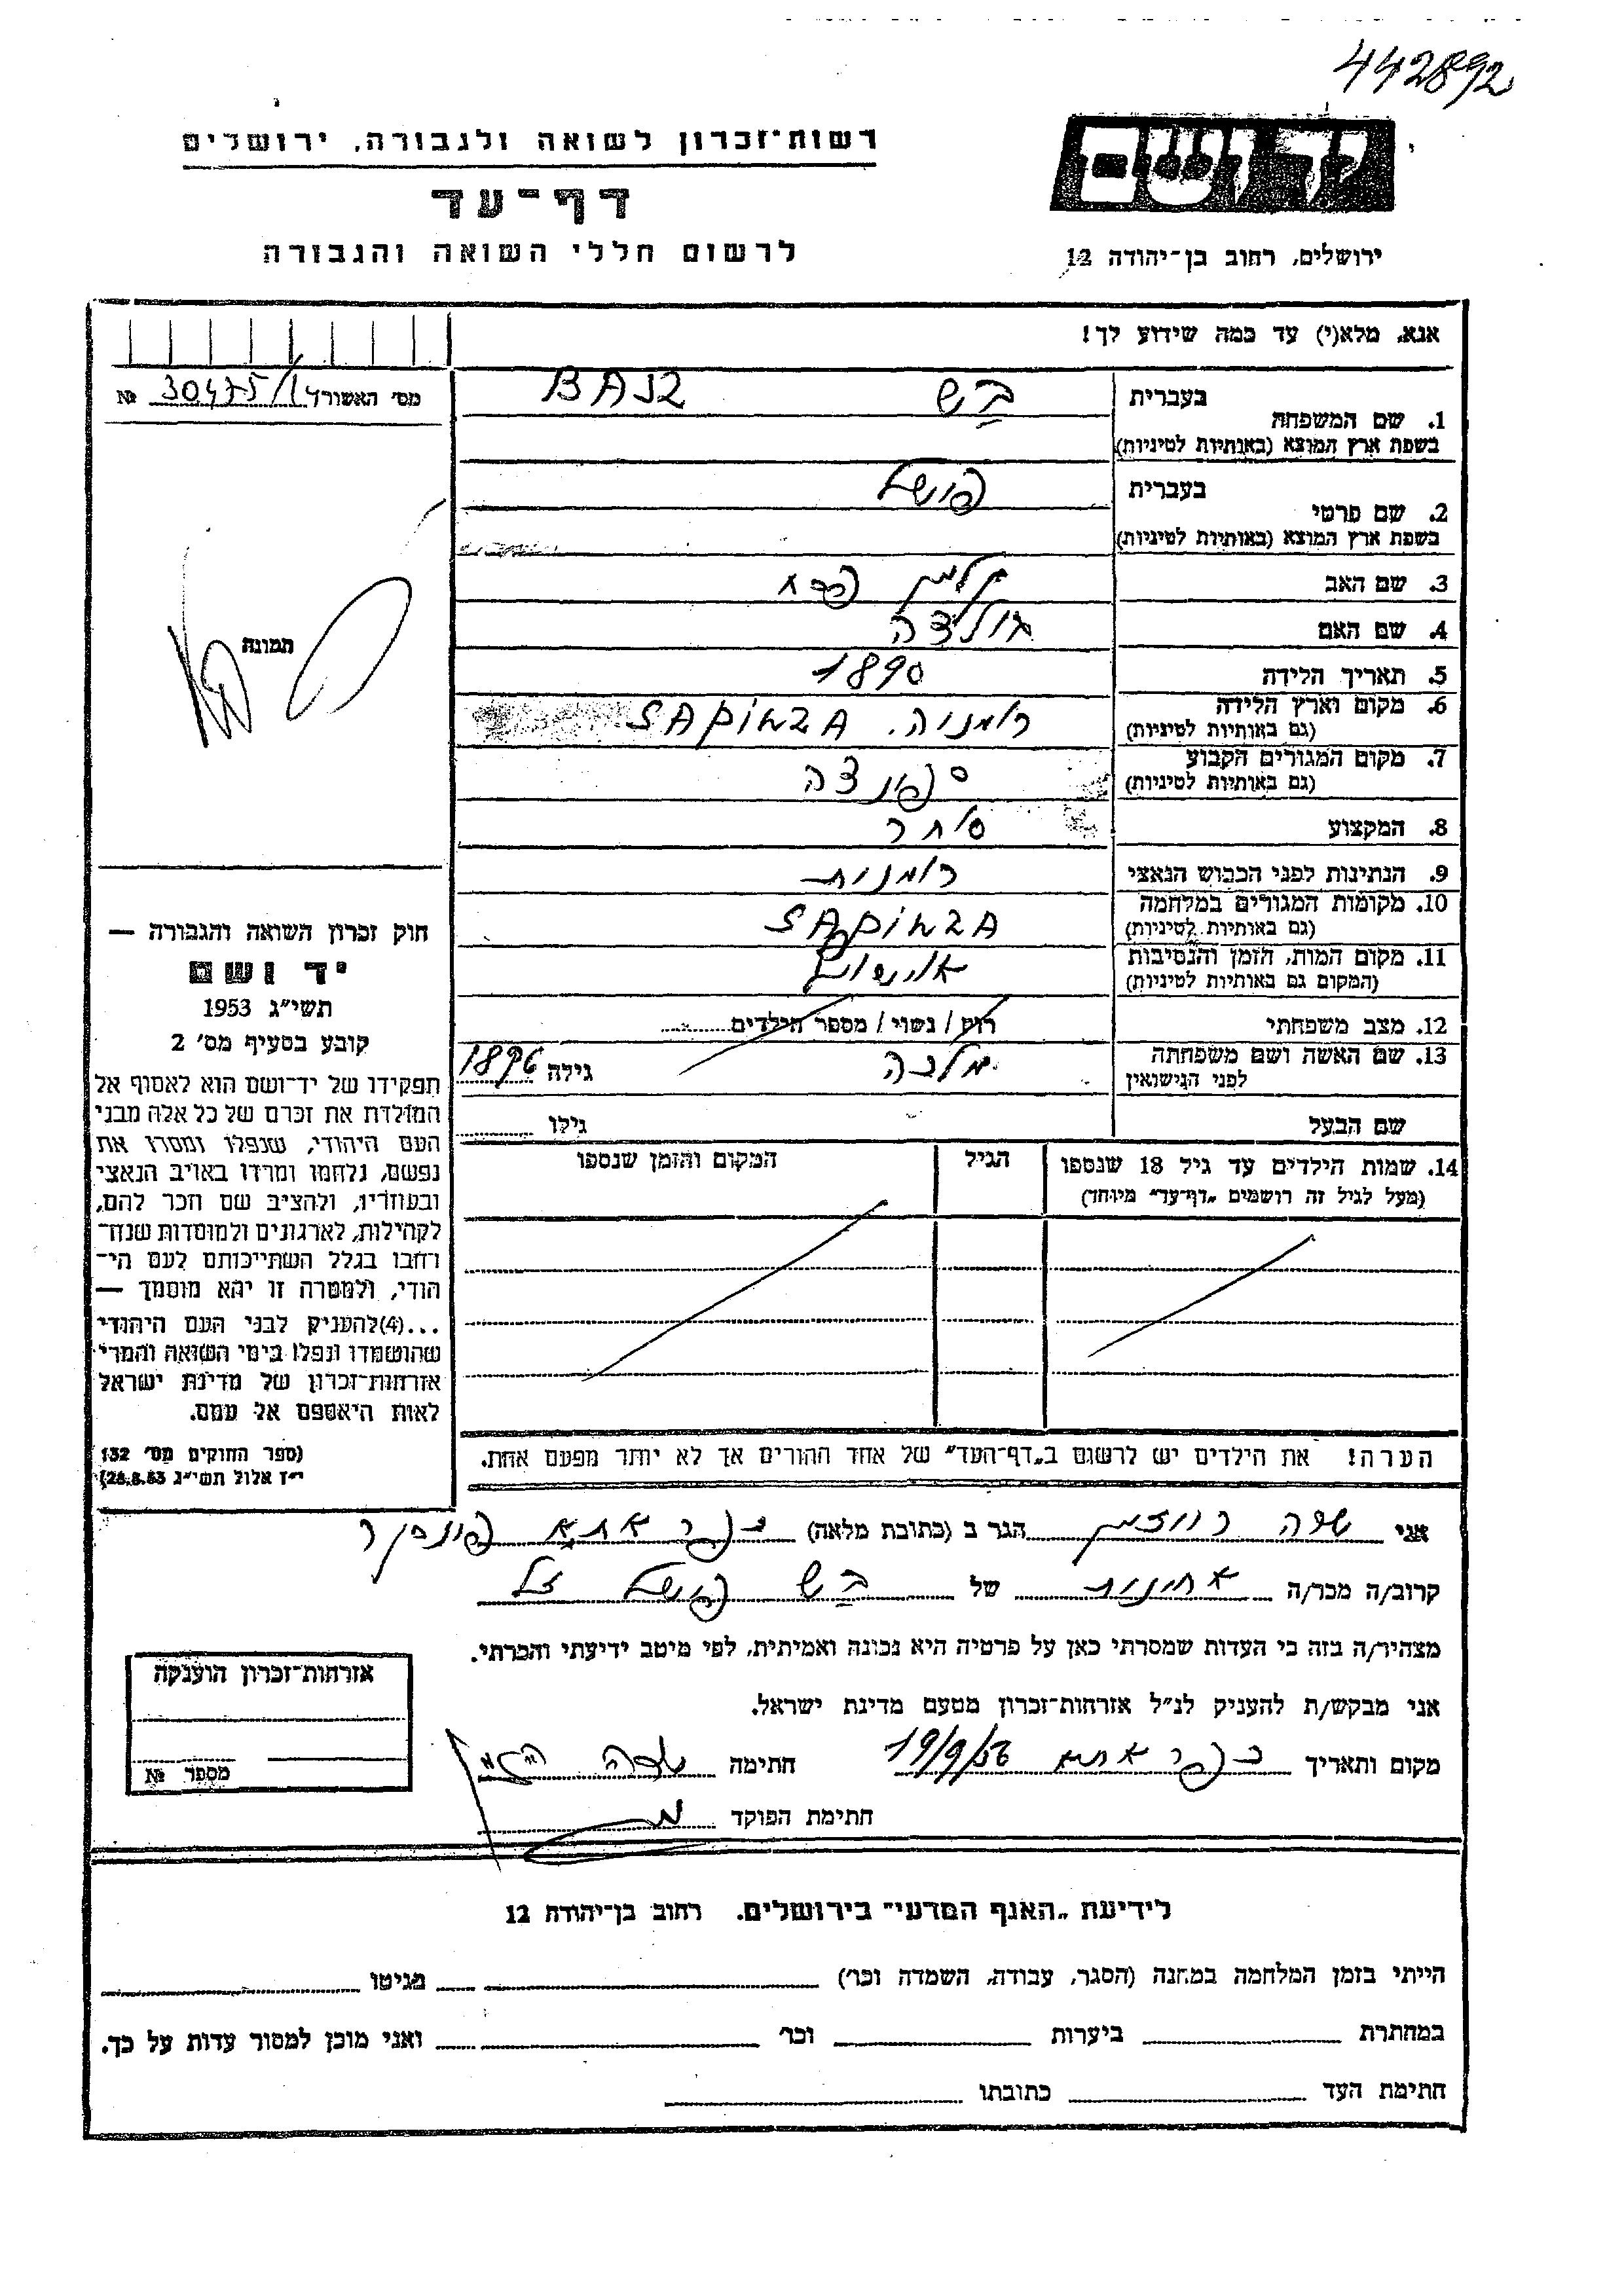 442892
יד ושם
רשות־זכרון לשואה ולגבורה, ירושלים
דף־עד
לרשום חללי השואה והגבורה
ירושלים, רחוב בן־יהודה 12
אנא, מלא(י) עד כמה שידוע לך!
מס' האשור 30475/14 №
1. שם המשפחה בעברית בש BASZ
בשפת ארץ המוצא (באותיות לטיניות)
2. שם פרטי בעברית פישל
בשפת ארץ המוצא (באותיות לטיניות)
3. שם האב זלמן פסח
4. שם האם גולדה
5. תאריך הלידה 1890
6. מקום וארץ הלידה רומניה. SAPINZA
(גם באותיות לטיניות)
7. מקום המגורים הקבוע ספינצה
(גם באותיות לטיניות)
8. המקצוע סוחר
9. הנתינות לפני הכבוש הנאצי רומנית
10. מקומות המגורים במלחמה SAPINZA
(גם באותיות לטיניות)
11. מקום המות, הזמן והנסיבות אושויץ
(המקום גם באותיות לטיניות)
12. מצב משפחתי רווק / נשוי / מספר הילדים
13. שם האשה ושם משפחתה מלכה גילה 1896
לפני הנישואין
שם הבעל גילו
14. שמות הילדים עד גיל 18 שנספו הגיל המקום והזמן שנספו
(מעל לגיל זה רושמים „דף־עד” מיוחד)
הערה! את הילדים יש לרשום ב„דף־העד” של אחד ההורים אך לא יותר מפעם אחת.
תמונה
חוק זכרון השואה והגבורה —
יד ושם
תשי״ג 1953
קובע בסעיף מס' 2
תפקידו של יד־ושם הוא לאסוף אל
המולדת את זכרם של כל אלה מבני
העם היהודי, שנפלו ומסרו את
נפשם, נלחמו ומרדו באויב הנאצי
ובעוזריו, ולהציב שם וזכר להם,
לקהילות, לארגונים ולמוסדות שנח־
רחבו בגלל השתייכותם לעם הי־
הודי, ולמטרה זו יהא מוסמך —
...(4) להעניק לבני העם היהודי
שהושמדו ונפלו בימי השואה והמרי
אזרחות־זכרון של מדינת ישראל
לאות היאספם אל עמם.
(ספר החוקים מס' 132
י״ז אלול תשי״ג 28.8.53)
אני שרה רוזמן הגר ב (כתובת מלאה) כפר אתא פינסקר
קרוב/ה מכר/ה אחינית של בש פישל ז״ל
מצהיר/ה בזה כי העדות שמסרתי כאן על פרטיה היא נכונה ואמיתית, לפי מיטב ידיעתי והכרתי.
אני מבקש/ת להעניק לנ״ל אזרחות־זכרון מטעם מדינת ישראל.
מקום ותאריך כפר אתא 19/9/56 חתימה שרה
חתימת הפוקד
אזרחות־זכרון הוענקה
מספר №
לידיעת „האגף המדעי” בירושלים. רחוב בן־יהודה 12
הייתי בזמן המלחמה במחנה (הסגר, עבודה, השמדה וכו') מגיטו
במחתרת ביערות וכו' ואני מוכן למסור עדות על כך.
חתימת העד כתובתו